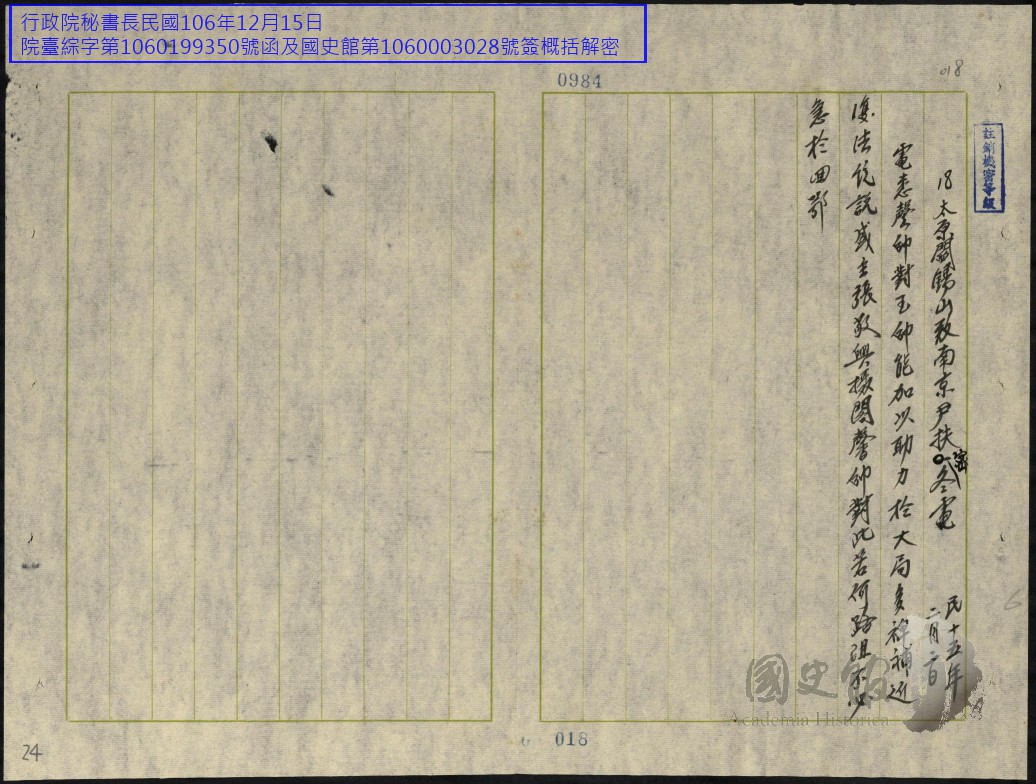 行政院秘書長民國106年12月15日
院臺綜字第1060199350號函及國史館第1060003028號簽概括解密
0984
018
註銷機密等級
18太原閻錫山致南京尹扶一密冬電
民十五年
二月二日
電悉馨帥對玉帥能加以助力於大局多裨補近
復法統說或主張敬輿攝閣馨帥對此若何
急於回鄂
國史館
Academia Historica
018
24